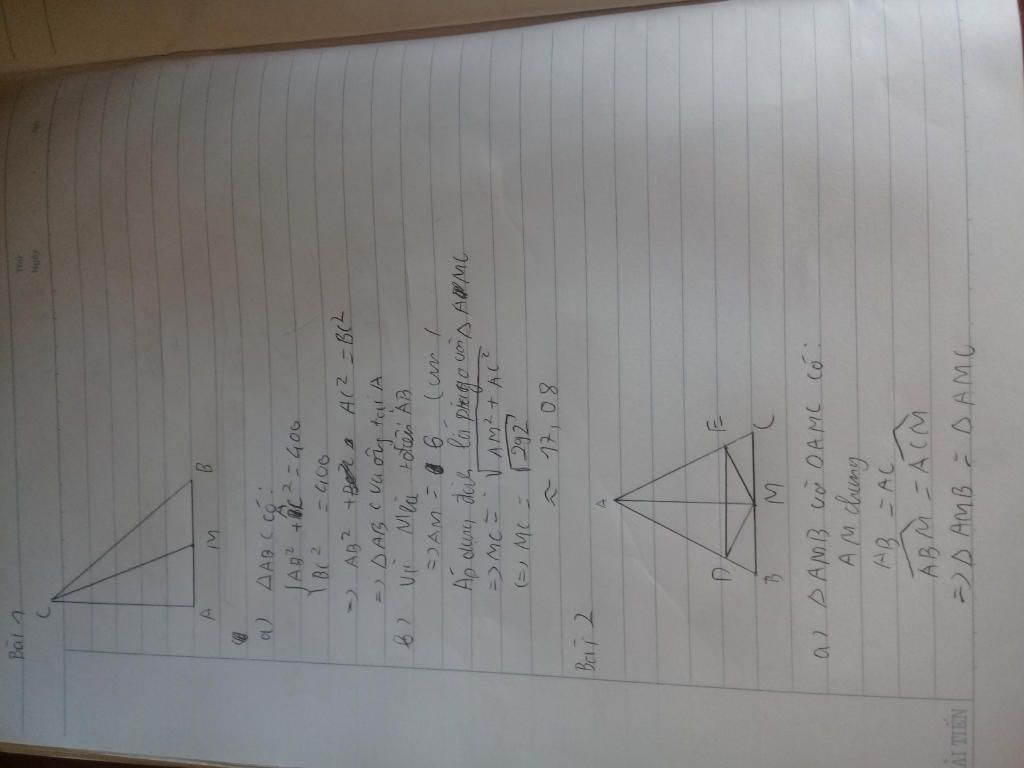 Thứ
Ngày
No.
Bài 1
C
A M B
a) ΔABC có:
{AB² + AC² = 400
BC² = 400
=> AB² + AC² = BC²
=> ΔABC vuông tại A
b) Vì M là tđiểm AB
=> AM = 6 (cm)
Áp dụng định lí pitago với ΔAMC
=> MC = √AM² + AC²
(=> MC = √292
≈ 17,08
Bài 2
A
D E
B M C
a) ΔAMB và ΔAMC có:
AM chung
AB = AC
ABM = ACM
=> ΔAMB = ΔAMC
ẢI TIẾN